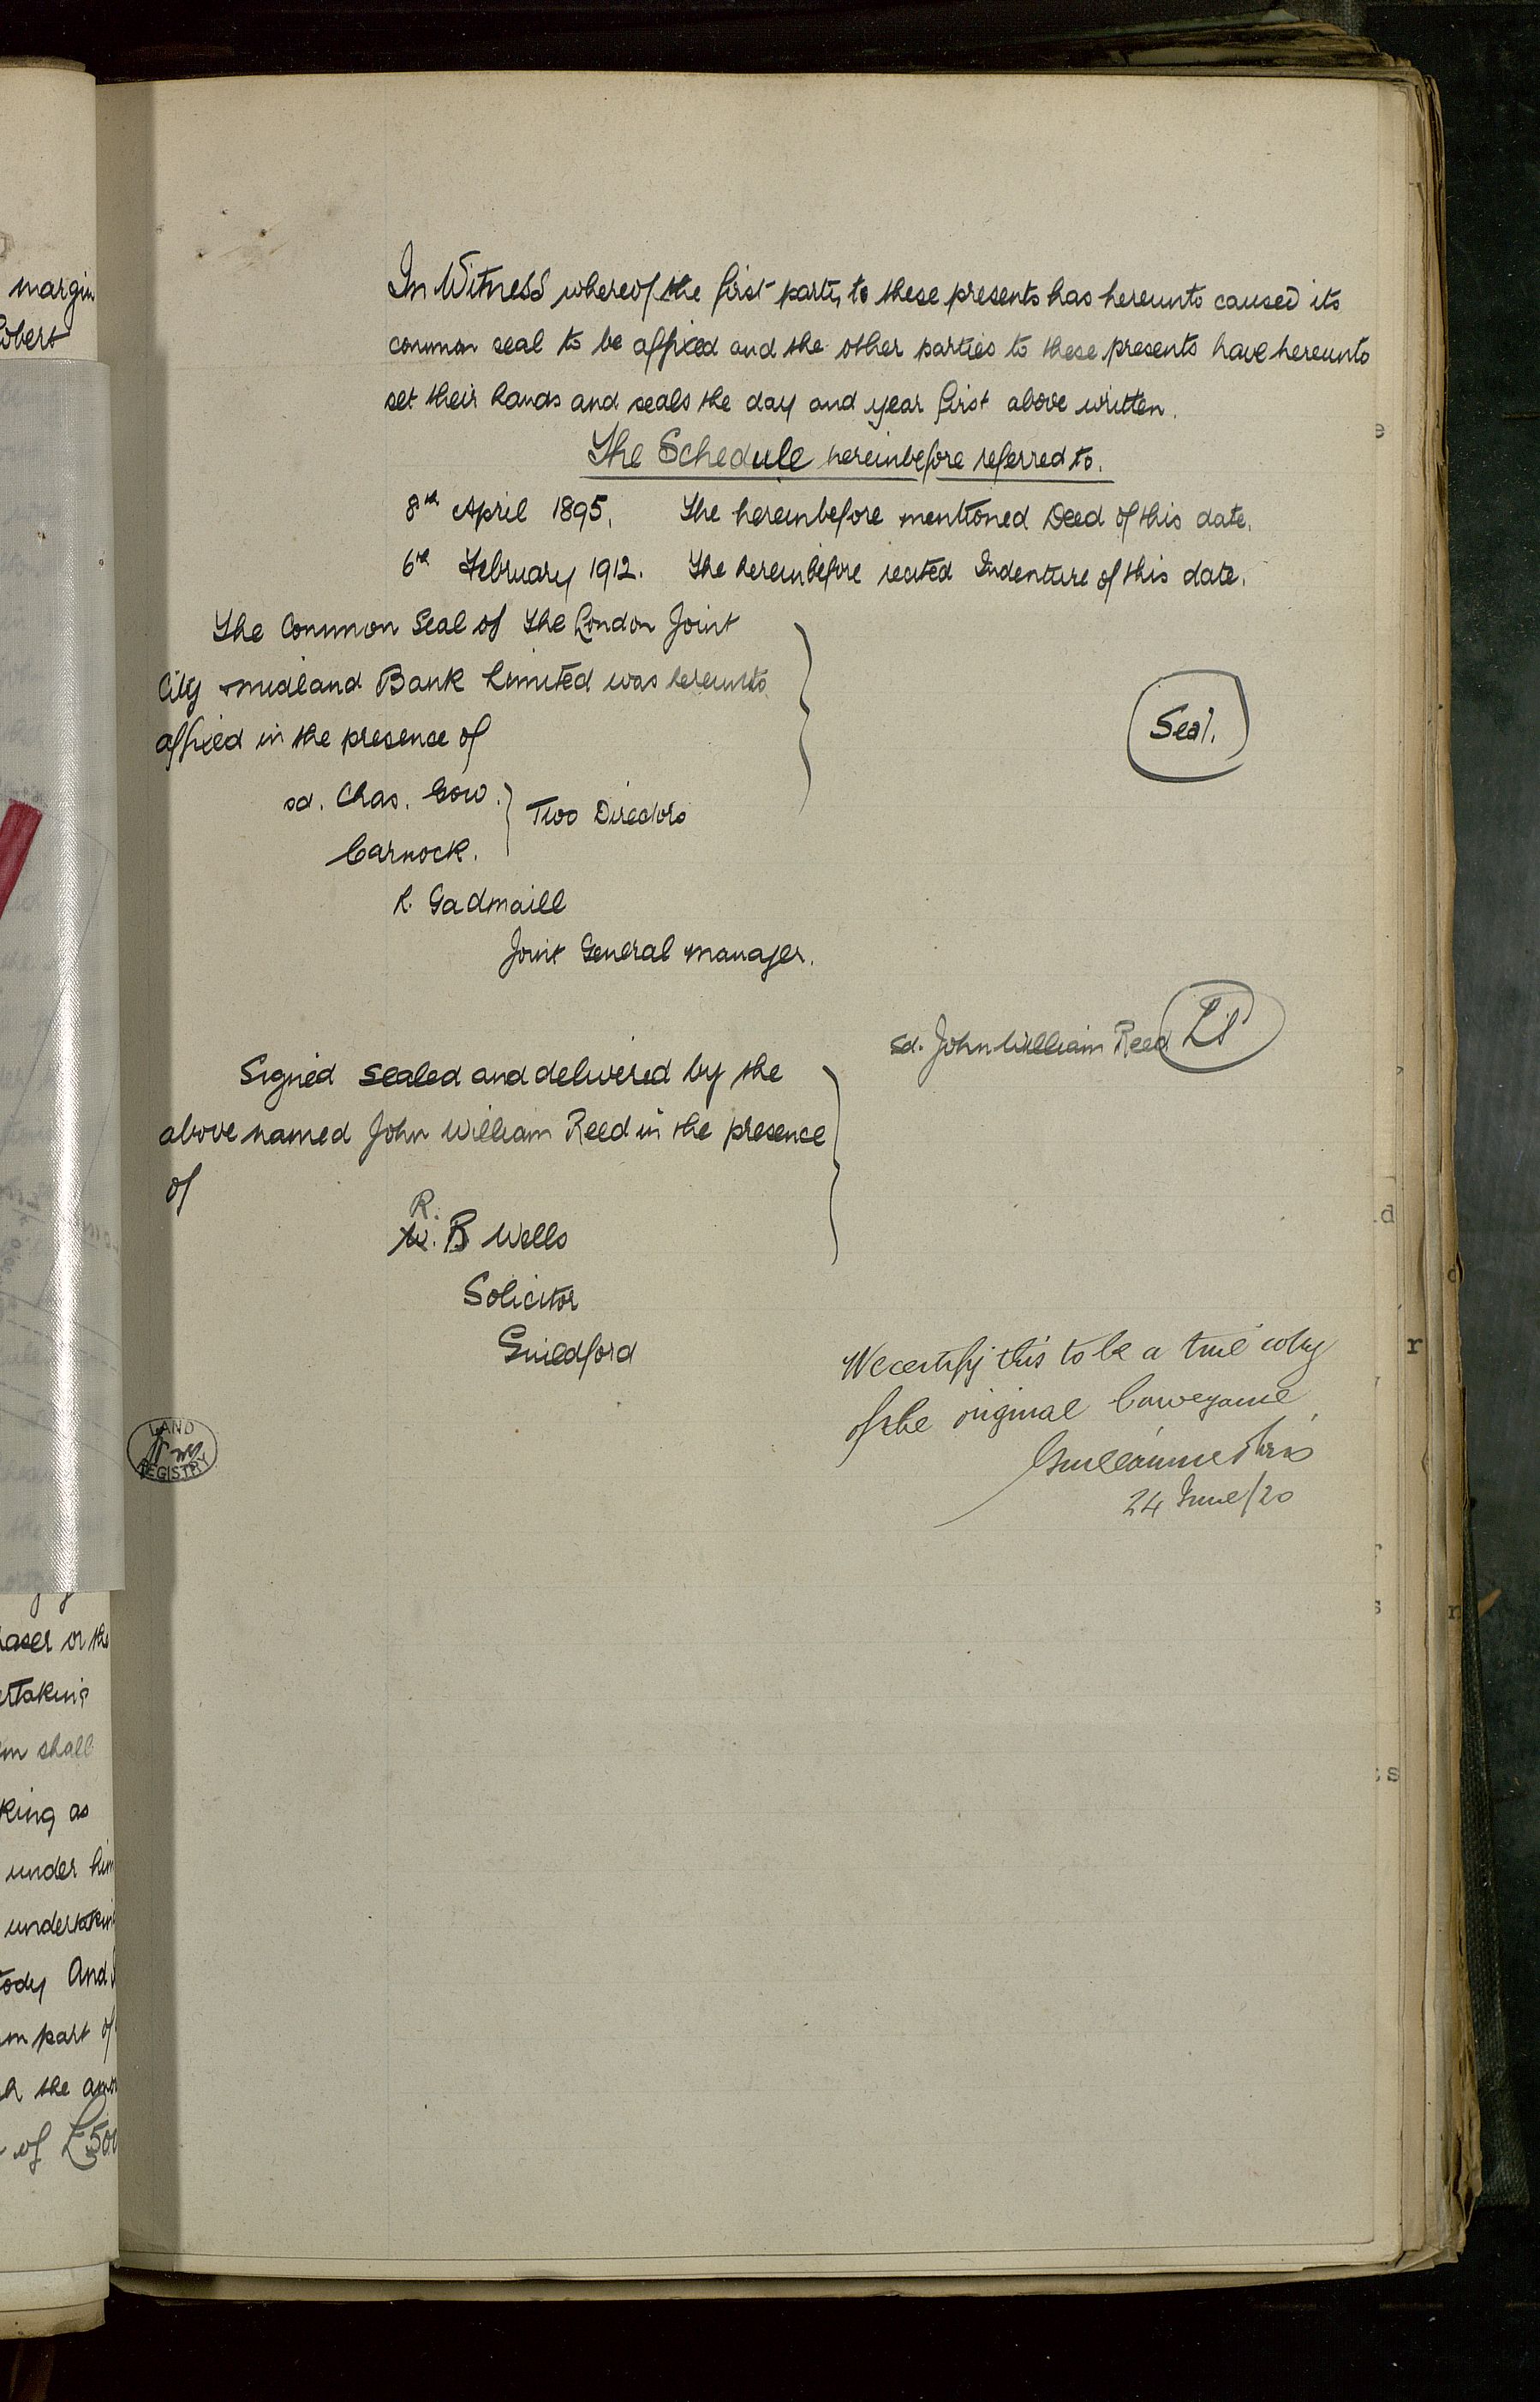 In Witness whereof the first party to these presents has hereunto caused its
common seal to be affixed and the other parties to these presents have hereunto
set their hands and seals the day and year first above written.
The Schedule hereinbefore referred to.
8th April 1895. The hereinbefore mentioned Deed of this date.
6th February 1912. The hereinbefore recited Indenture of this date.
The Common Seal of The London Joint
City & Midland Bank Limited was hereunto
affixed in the presence of
Seal.
sd. Chas. Gow.
Two Directors
Carnock.
Joint General Manager.
sd. John William Reed LS
Signed sealed and delivered by the
above named John William Reed in the presence
of
R.
W. B Wells
Solicitor
Guildford
We certify this to be a true copy
of the original Conveyance
24 June/20
LAND
REGISTRY
margin
obert
aser or the
ertaking
shall
king as
under him
undertakin
ody And
part of
the
of £500